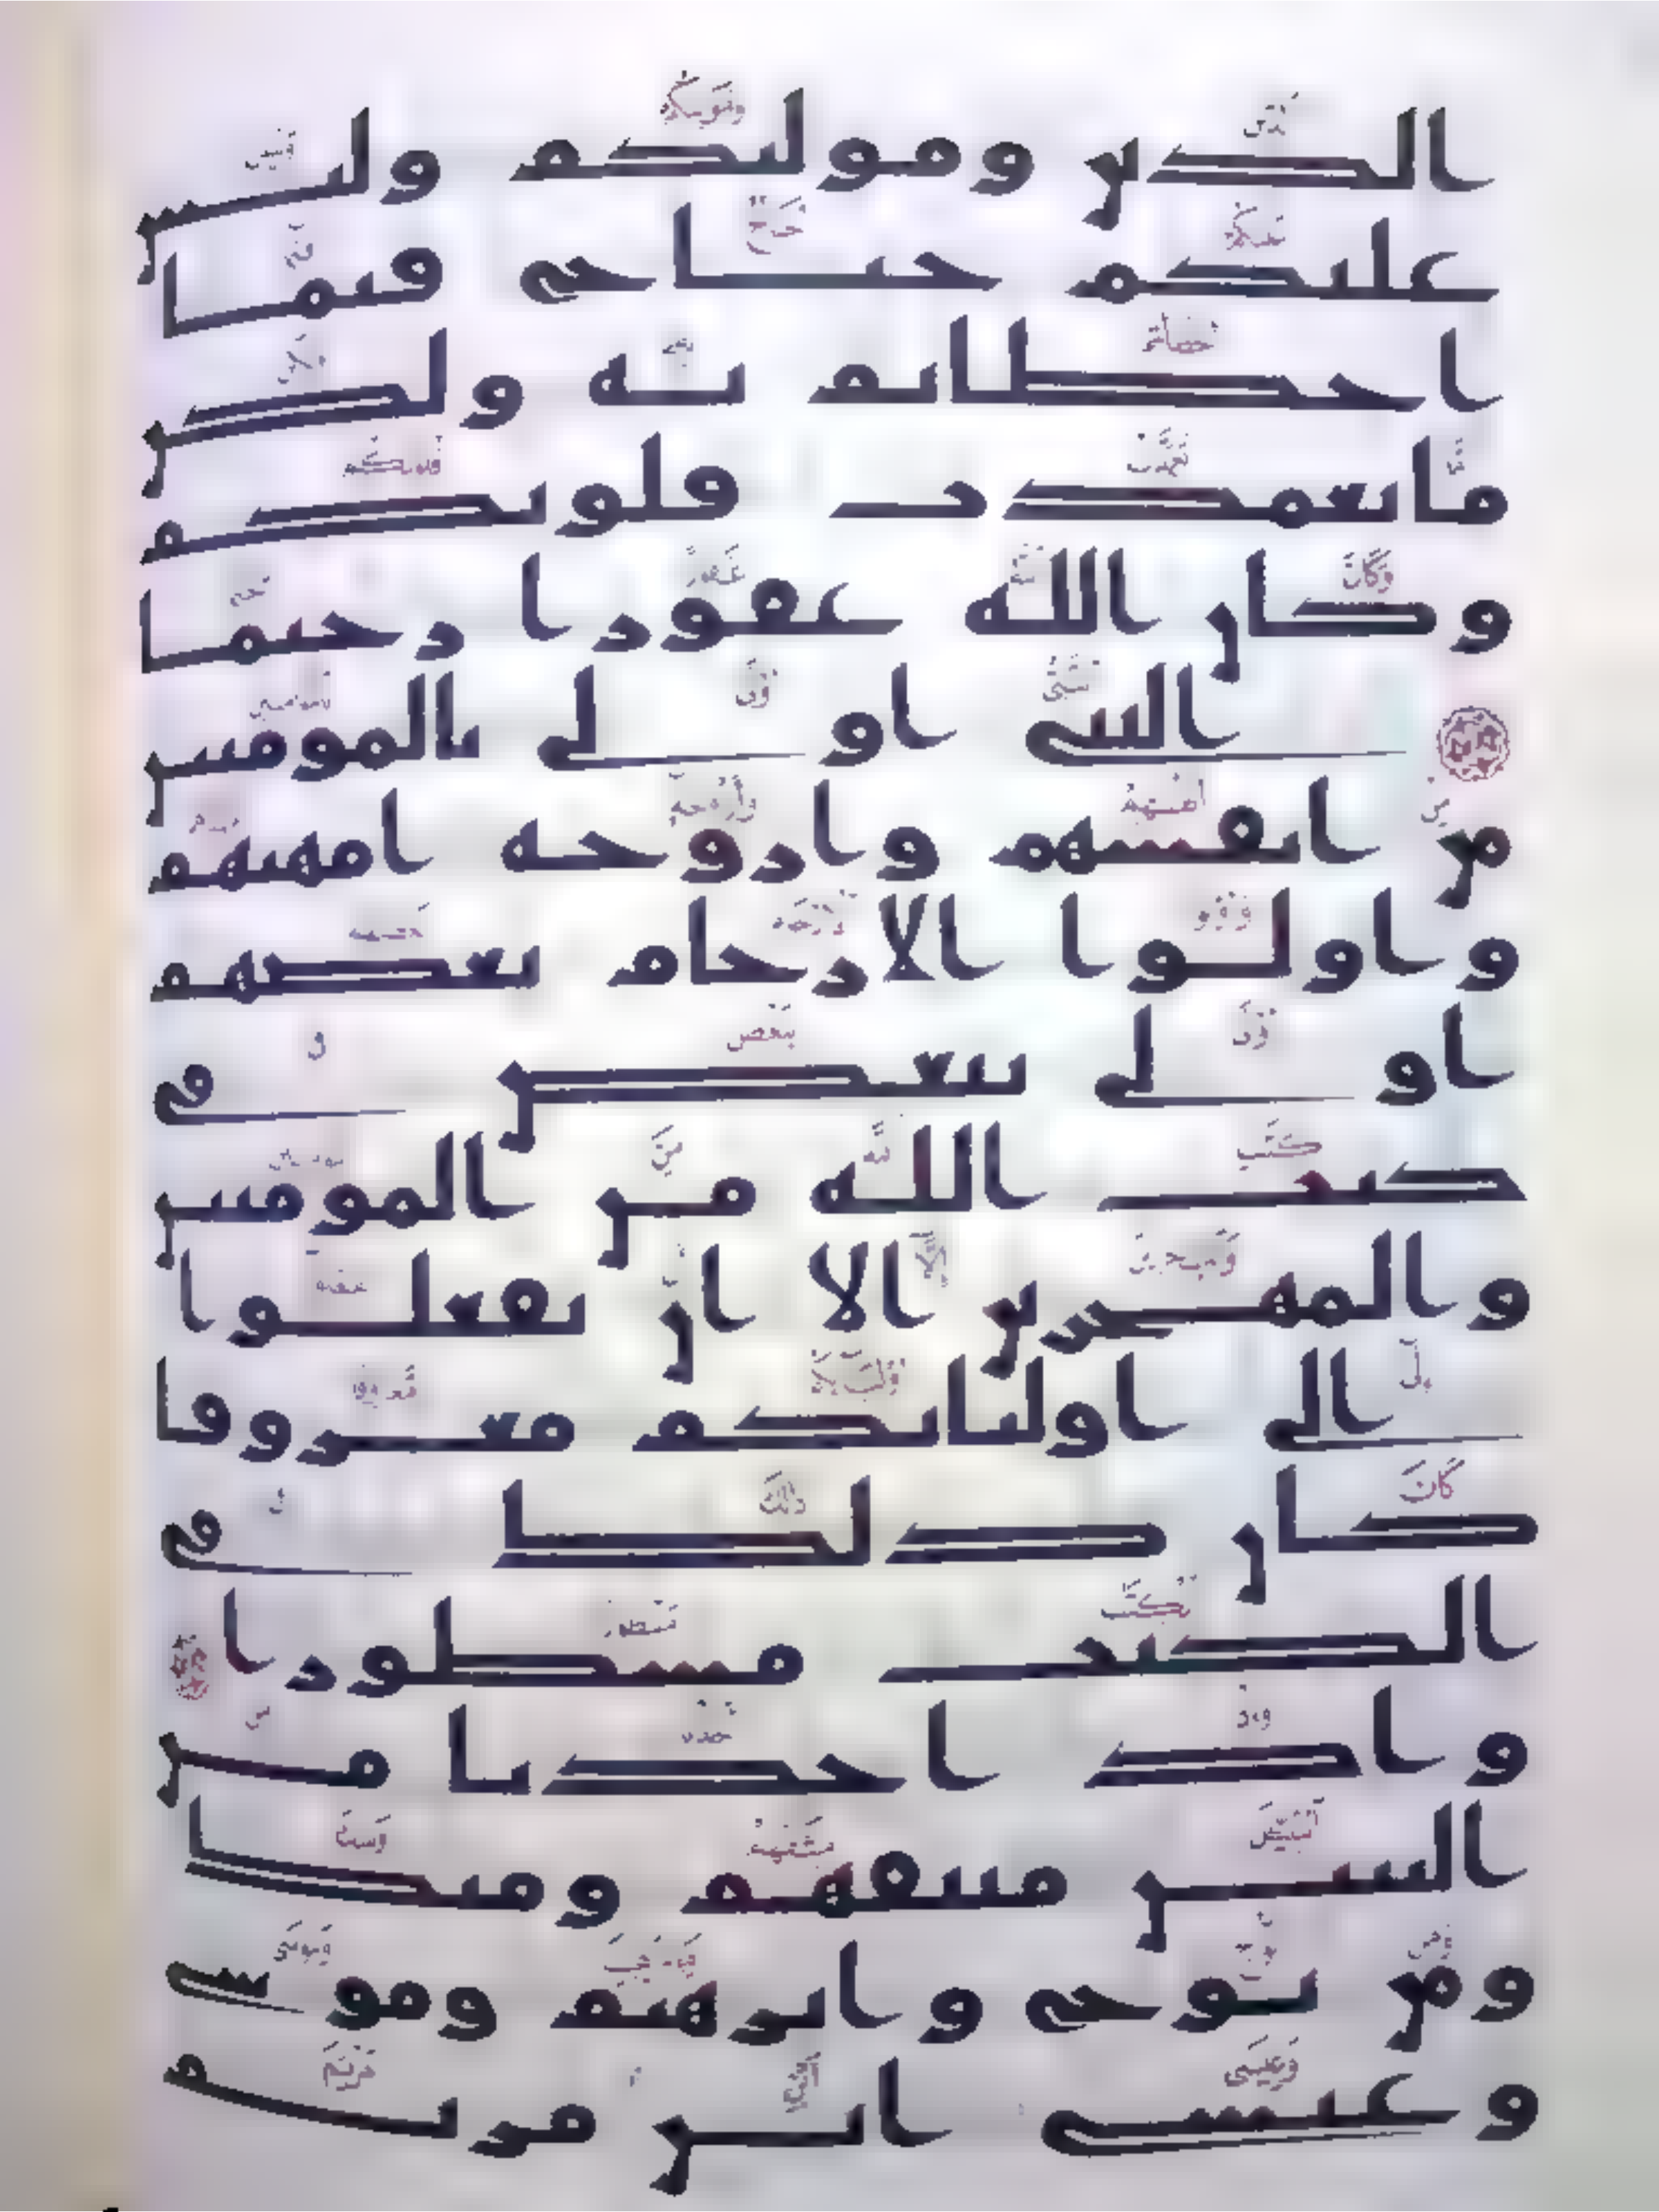 الدين ومواليكم وليس
عليكم جناح فيما
اخطاتم به ولكن
ما تعمدت قلوبكم
وكان الله غفورا رحيما
النبي اولى بالمومنين
من انفسهم وازوجه امهتهم
واولوا الارحام بعضهم
اولى ببعض في
كتب الله من المومنين
والمهجرين الا ان تفعلوا
الى اوليائكم معروفا
كان ذلك في
الكتب مسطورا
واذ اخذنا من
النبين ميثقهم ومنك
ومن نوح وابرهيم وموسى
وعيسى ابن مريم